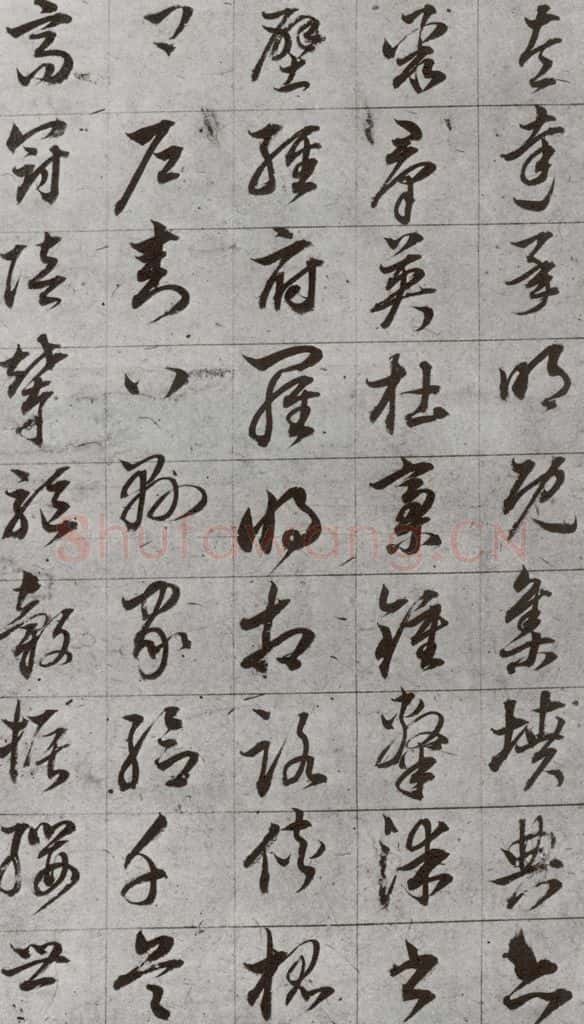 左達承明既集墳典亦
聚羣英杜稾鍾隸漆書
壁經府羅將相路俠槐
卿戶封八縣家給千兵
高冠陪輦驅轂振纓世
Shufawang.CN